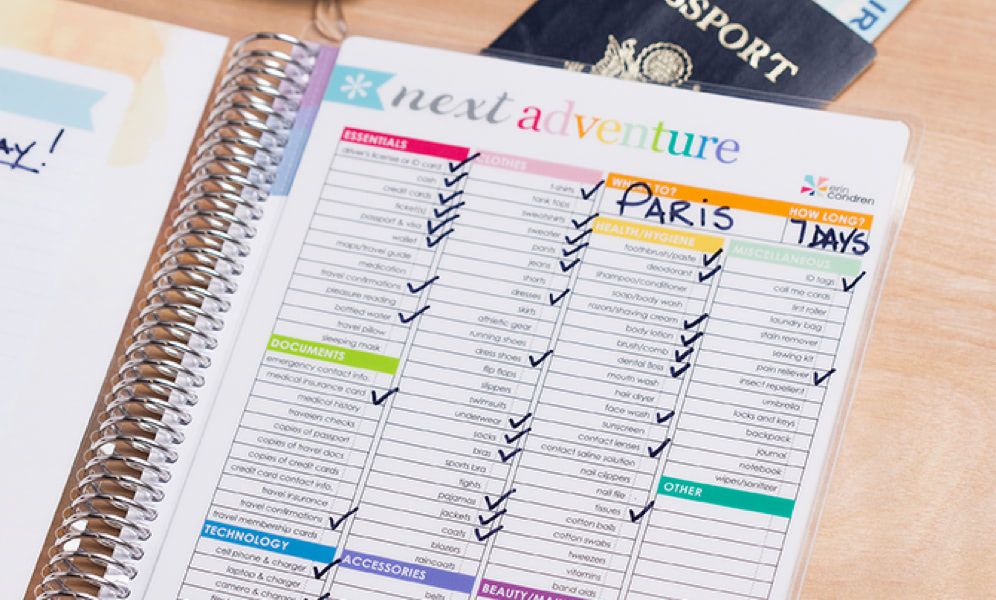 AY!
PASSPORT
AIR
next adventure
erin condren
WHERE TO?
PARIS
HOW LONG?
7 DAYS
ESSENTIALS
driver's license or ID card
cash
credit cards
ticket(s)
passport & visa
wallet
maps/travel guide
medication
travel confirmations
pleasure reading
bottled water
travel pillow
sleeping mask
DOCUMENTS
emergency contact info.
medical insurance card
medical history
travelers checks
copies of passport
copies of travel docs
copies of credit cards
credit card contact info.
travel insurance
travel confirmations
travel membership cards
TECHNOLOGY
cell phone & charger
laptop & charger
camera & charger
CLOTHES
t-shirts
tank tops
sweatshirts
sweater
pants
jeans
shorts
dresses
skirts
athletic gear
running shoes
dress shoes
flip flops
slippers
swimsuits
underwear
socks
bras
sports bra
tights
pajamas
jackets
coats
blazers
raincoats
ACCESSORIES
belts
HEALTH/HYGIENE
toothbrush/paste
deodorant
shampoo/conditioner
soap/body wash
razors/shaving cream
body lotion
brush/comb
dental floss
mouth wash
hair dryer
face wash
sunscreen
contact lenses
contact saline solution
nail clippers
nail file
tissues
cotton balls
cotton swabs
tweezers
vitamins
band aids
MISCELLANEOUS
ID tags
call me cards
lint roller
laundry bag
stain remover
sewing kit
pain reliever
insect repellent
umbrella
locks and keys
backpack
journal
notebook
wipes/sanitizer
OTHER